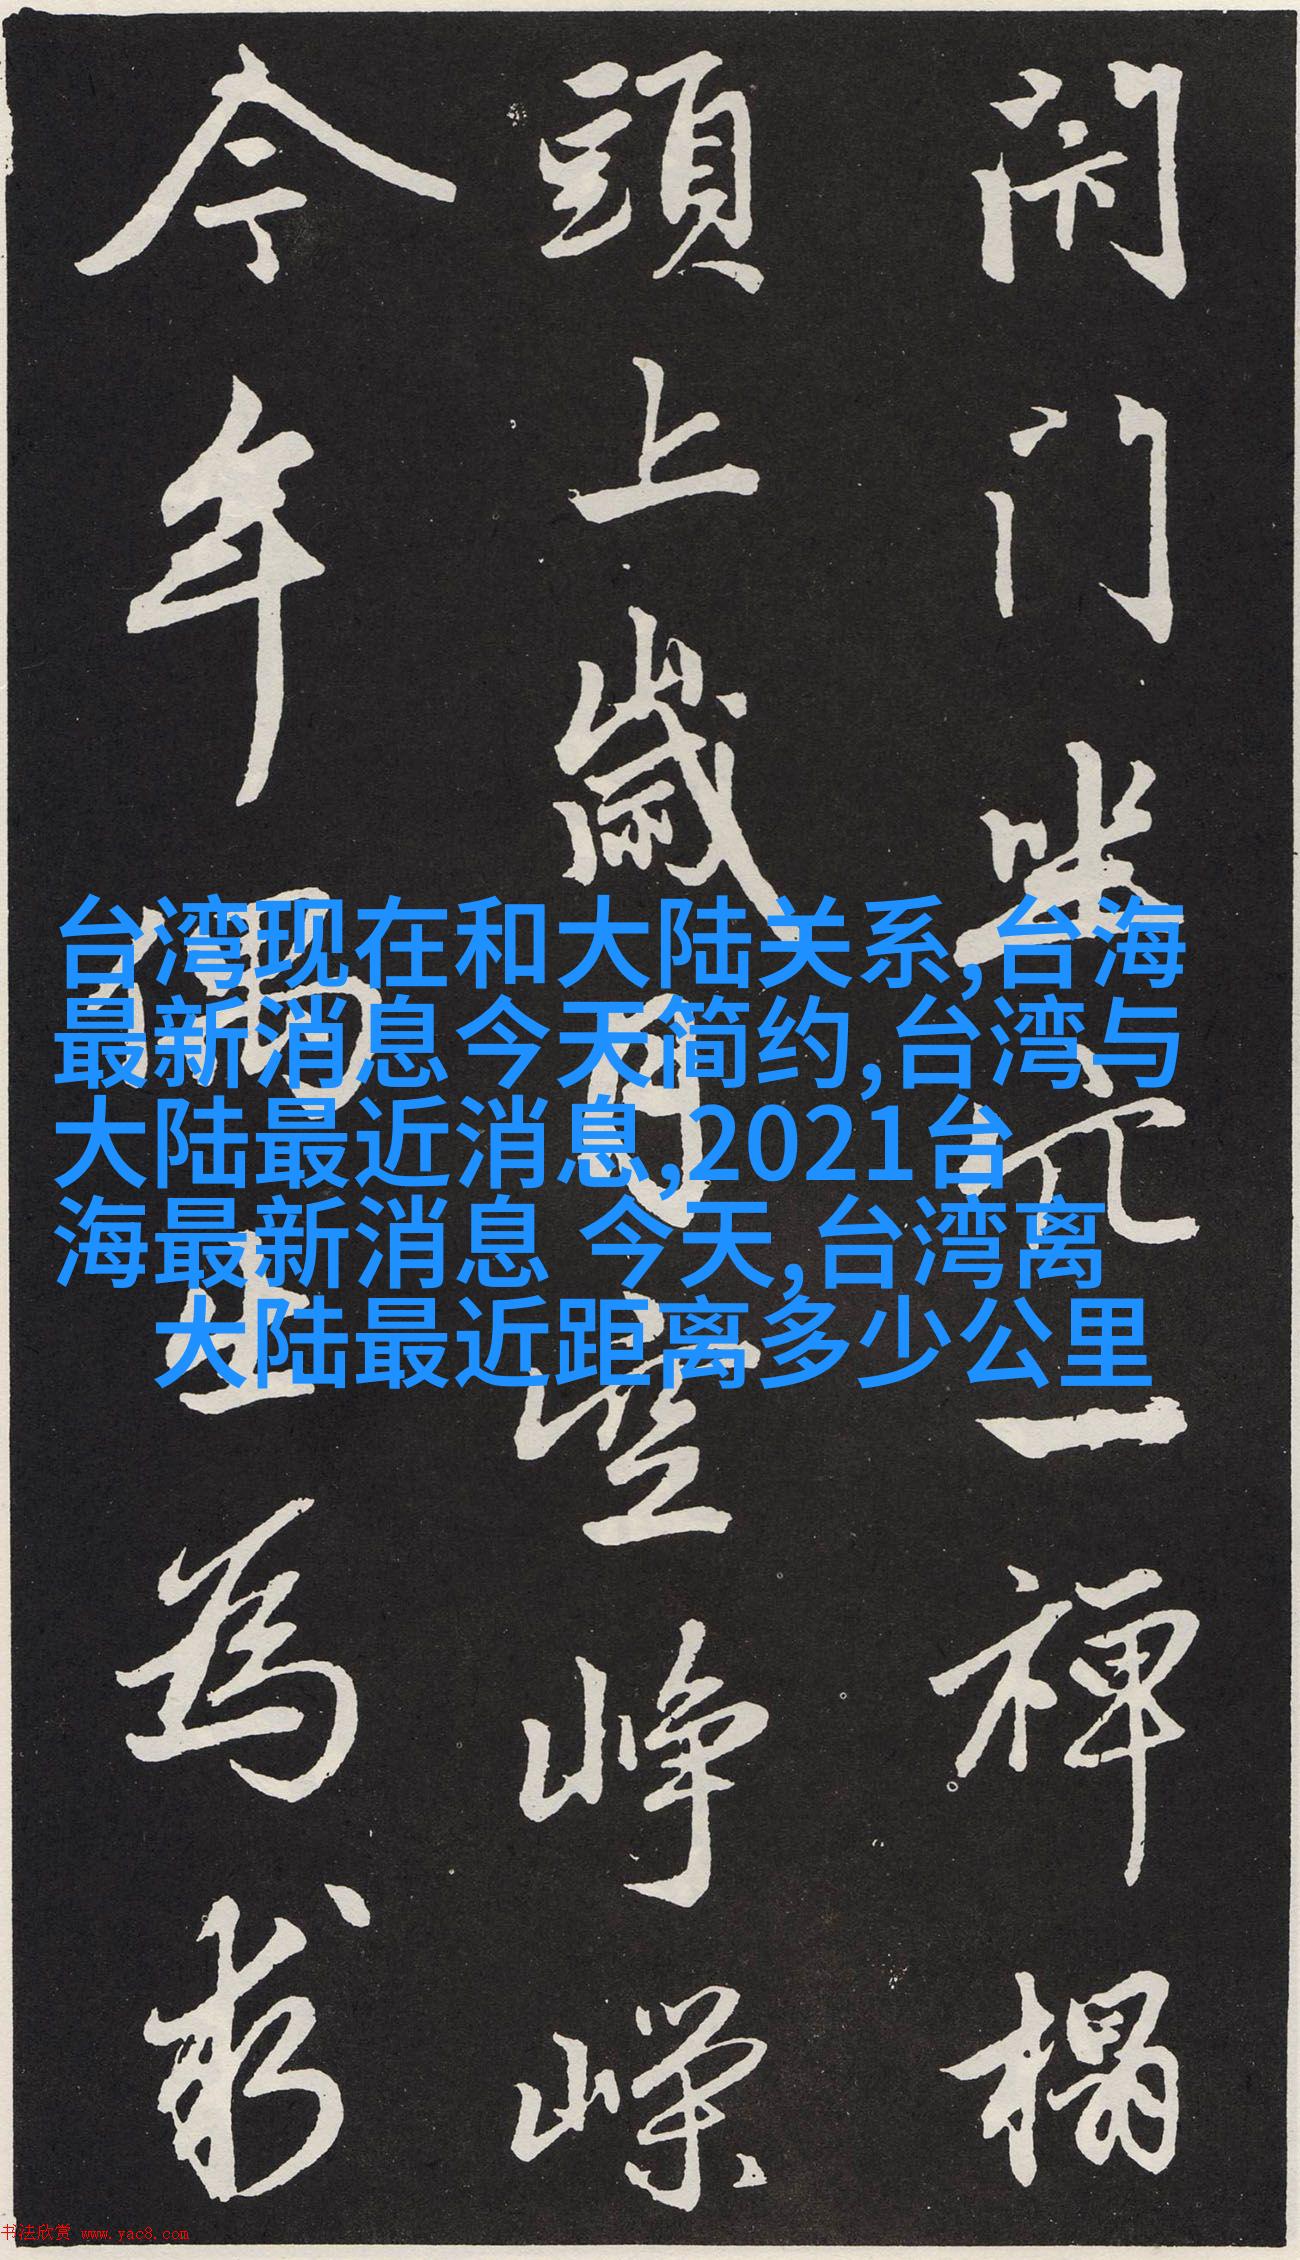 閉門坐穴一禪榻
頭上歲月空崢嶸
今年偶出為求
台湾现在和大陆关系,台海
最新消息今天简约,台湾与
大陆最近消息,2021台
海最新消息 今天,台湾离
大陆最近距离多少公里
书法欣赏 www.yac8.com